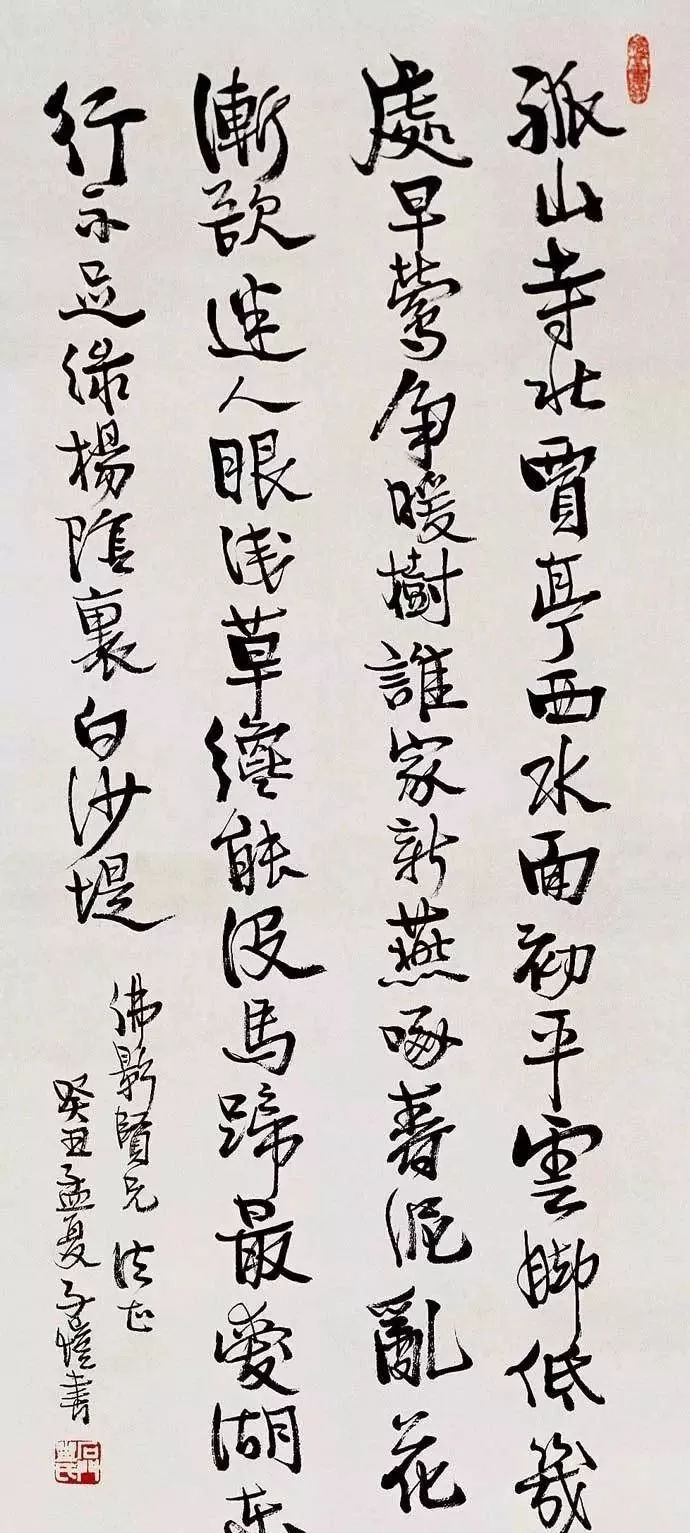 孤山寺北賈亭西水面初平雲脚低幾
處早鶯争暖樹誰家新燕啄春泥亂花
漸欲迷人眼浅草纔能没馬蹄最愛湖东
行不足綠楊陰裏白沙堤
佛影賢兄法正
癸丑孟夏子愷書
石門豐氏